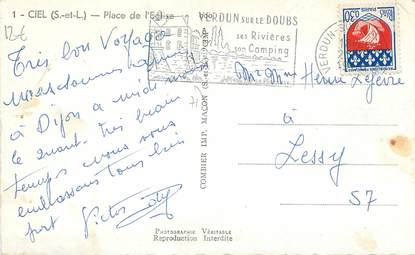 1 - CIEL (S.-et-L.) - Place de l'Eglise
12€
VERDUN SUR LE DOUBS
ses Rivières
son Camping
VERDUN
0,30
PARIS
Très bon Voyage
nous sommes
à Dijon à midi
le quart. Très beau
temps nous vous
embrassons tous bien
fort Victor
COMBIER IMP. MACON (S.-et-L.)
Mr Mme Henri Lefèvre
à
Lessy
57
PHOTOGRAPHIE VÉRITABLE
Reproduction Interdite